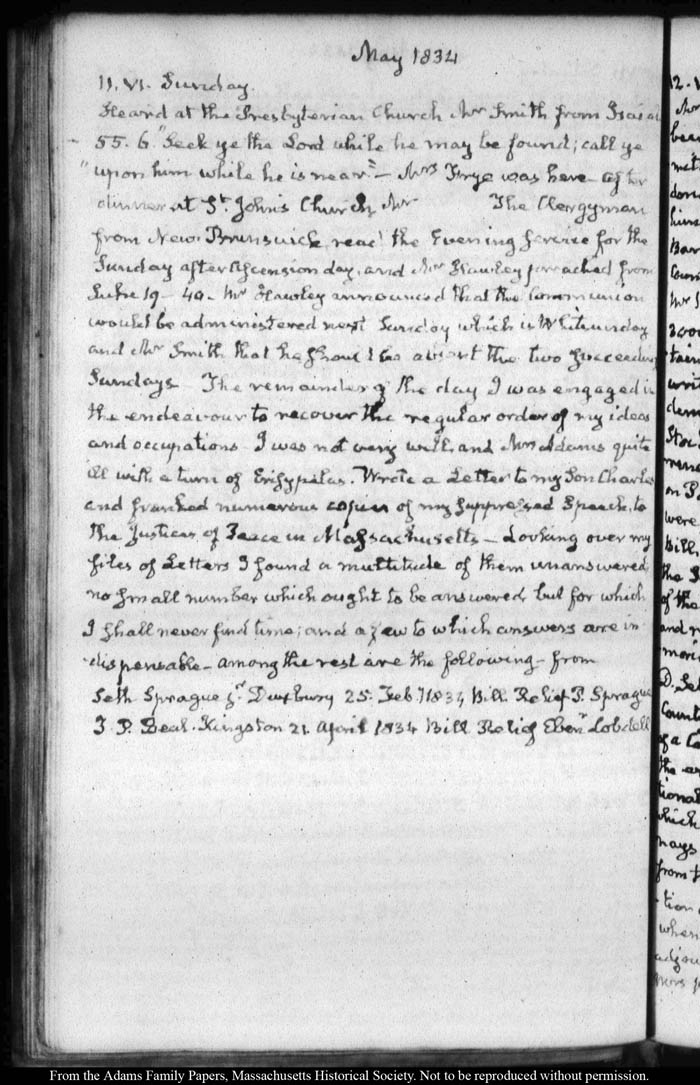 May 1834
11. VI. Sunday.
Heard at the Presbyterian Church Mr Smith from Isaiah
55. 6 "Seek ye the Lord while he may be found; call ye
"upon him while he is near" — Mrs Frye was here after
dinner at St. Johns Church, Mr The Clergyman
from New Brunswick, read the Evening Service for the
Sunday after Ascension day, and Mr Hawley preached from
Luke 19 - 40. Mr Hawley announced that the Communion
would be administered next Sunday which is Whitsunday
and Mr Smith that he should be absent the two succeeding
Sundays — The remainder of the day I was engaged in
the endeavour to recover the regular order of my ideas
and occupations — I was not very well, and Mrs Adams quite
ill with a turn of Erisypelas. Wrote a Letter to my Son Charles
and franked numerous copies of my suppressed Speech, to
the Justices of Peace in Massachusetts — Looking over my
files of Letters I found a multitude of them unanswered,
no small number which ought to be answered, but for which
I shall never find time; and a few to which answers are in-
dispensable — among the rest are the following — from
Seth Sprague jr. Duxbury 25. Feb. 1834 Bill Relief P. Sprague
J. P. Beal. Kingston 21 April 1834 Bill Relief Ebenr Lobdell
12. V
From the Adams Family Papers, Massachusetts Historical Society. Not to be reproduced without permission.